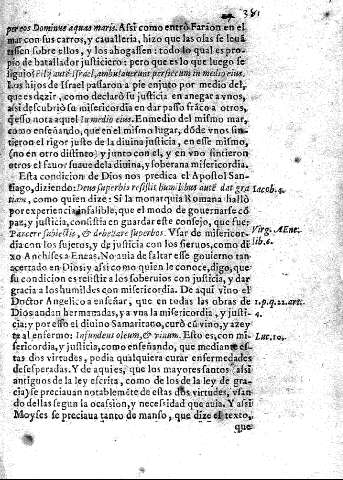 381
per eos Dominus aquas maris. Assi como entrò Faraon en el
mar con sus carros, y caualleria, hizo que las olas se leuã
tassen sobre ellos, y los ahogassen: todo lo qual es pro-
pio de batallador justiciero: pero que es lo que luego se
siguio? Filij autē Israel, ambulauerunt per siccum in medio eius.
Los hijos de Israel passaron a pie enjuto por medio del,
que es dezir, como declarò su justicia en anegar a vnos,
assi descubriò su misericordia en dar passo frãco a otros,
q̃ esso nota aquel In medio eius. En medio del mismo mar,
como enseñando, que en el mismo lugar, dóde vnos sin-
tieron el rigor justo de la diuina justicia, en esse mismo,
(no en otro distinto) y junto con el, y en vno sintieron
otros el fauor suaue de la diuina, y soberana misericordia.
Esta condicion de Dios nos predica el Apostol San-
tiago, diziendo: Deus superbis resistit humilibus autē dat gra
Iacob. 4.
tiam, como quien dize: Si la monarquia Romana hallò
por experiencia infalible, que el modo de gouernarse cõ
paz, y justicia, consistia en guardar este consejo, que fue:
Parcere subiectis, & debellare superbos. Vsar de misericor-
Virg. AEne.
dia con los sujetos, y de justicia con los sieruos, como di
lib. 6.
xo Anchises a Eneas. No auia de faltar esse gouierno tan
acertado en Dios; y assi como quien le conoce, digo, que
su condicion es resistir a los soberuios con justicia, y dar
gracia a los humildes con misericordia. De aqui vino el
Doctor Angelico a enseñar, que en todas las obras de
1. p. q. 21. art.
Dios andan hermanadas, y a vna la misericordia, y justi-
4.
cia; y por esso el diuino Samaritano, curò cũ vino, y azey
te al enfermo: Infundens oleum, & vinum. Esto es, con mi-
Luc. 10.
sericordia, y justicia, como enseñando, que mediante es-
tas dos virtudes, podia qualquiera curar enfermedades
desesperadas. Y de aqui es, que los mayores santos (assi
antiguos de la ley escrita, como de los de la ley de gra-
cia) se preciauan notablemēte de estas dos virtudes, vsan-
do dellas segun la ocassion, y necessidad que auia. Y assi
Moyses se preciaua tanto de manso, que dize el texto,
que